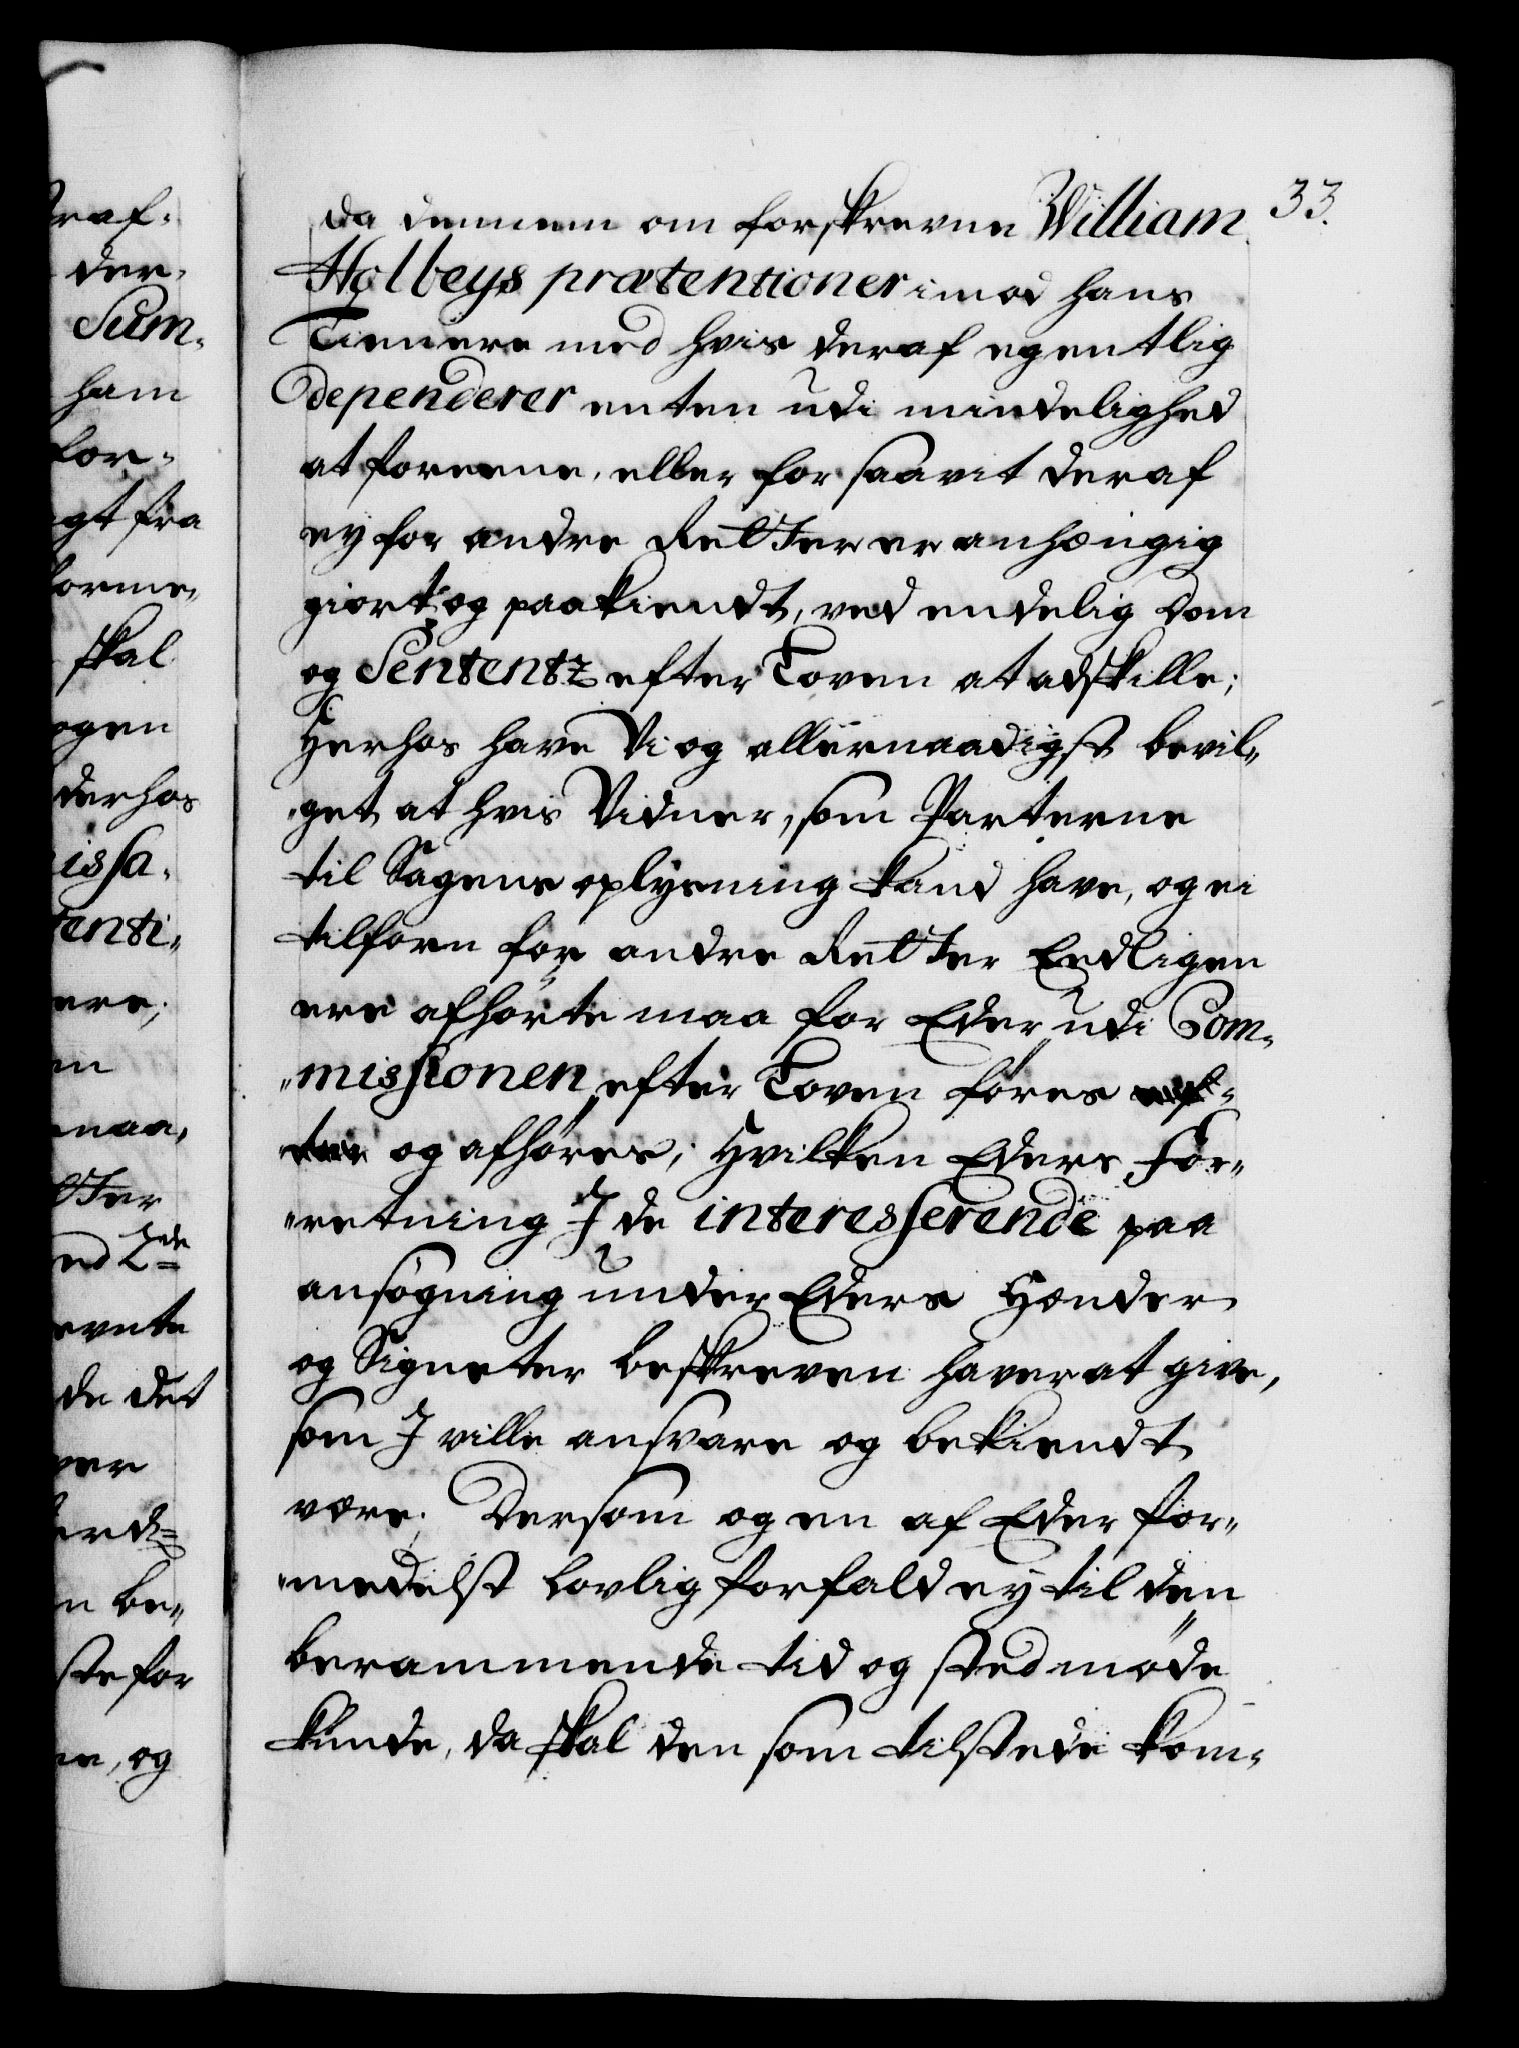 33.
da dennem om forskrevne William
Holbeys prætentioner imod hans
Tienere med hvis deraf egentlig
dependerer enten udi mindelighed
at foreene, eller for saavit deraf
ey for andre Retter er anhængig
giort og paakiendt, ved endelig Dom
og Sententz efter Loven at adskille;
Herhos have Vi og allernaadigst bevil„
„get at hvis Vidner, som Parterne
til Sagens oplysning kand have, og ei
tilforn for andre Retter Eedligen
ere afhørte maa for Eder udi Com„
„missionen efter Loven føres
og afhøres; Hvilken Eders For„
„retning I de interesserende paa
ansøgning under Eders Hænder
og Signeter beskreven haver at give,
som I ville ansvare og bekiendt
være; Dersom og en af Eder for„
„medelst lovlig forfald ey til den
berammende tid og sted møde
kunde, da skal den som tilstede kom„
der„
Sum„
ham
for„
fra
skal
ogen
derhos
issa„
tenti„
ere;
naa,
2de
de det
be„
ste for
og